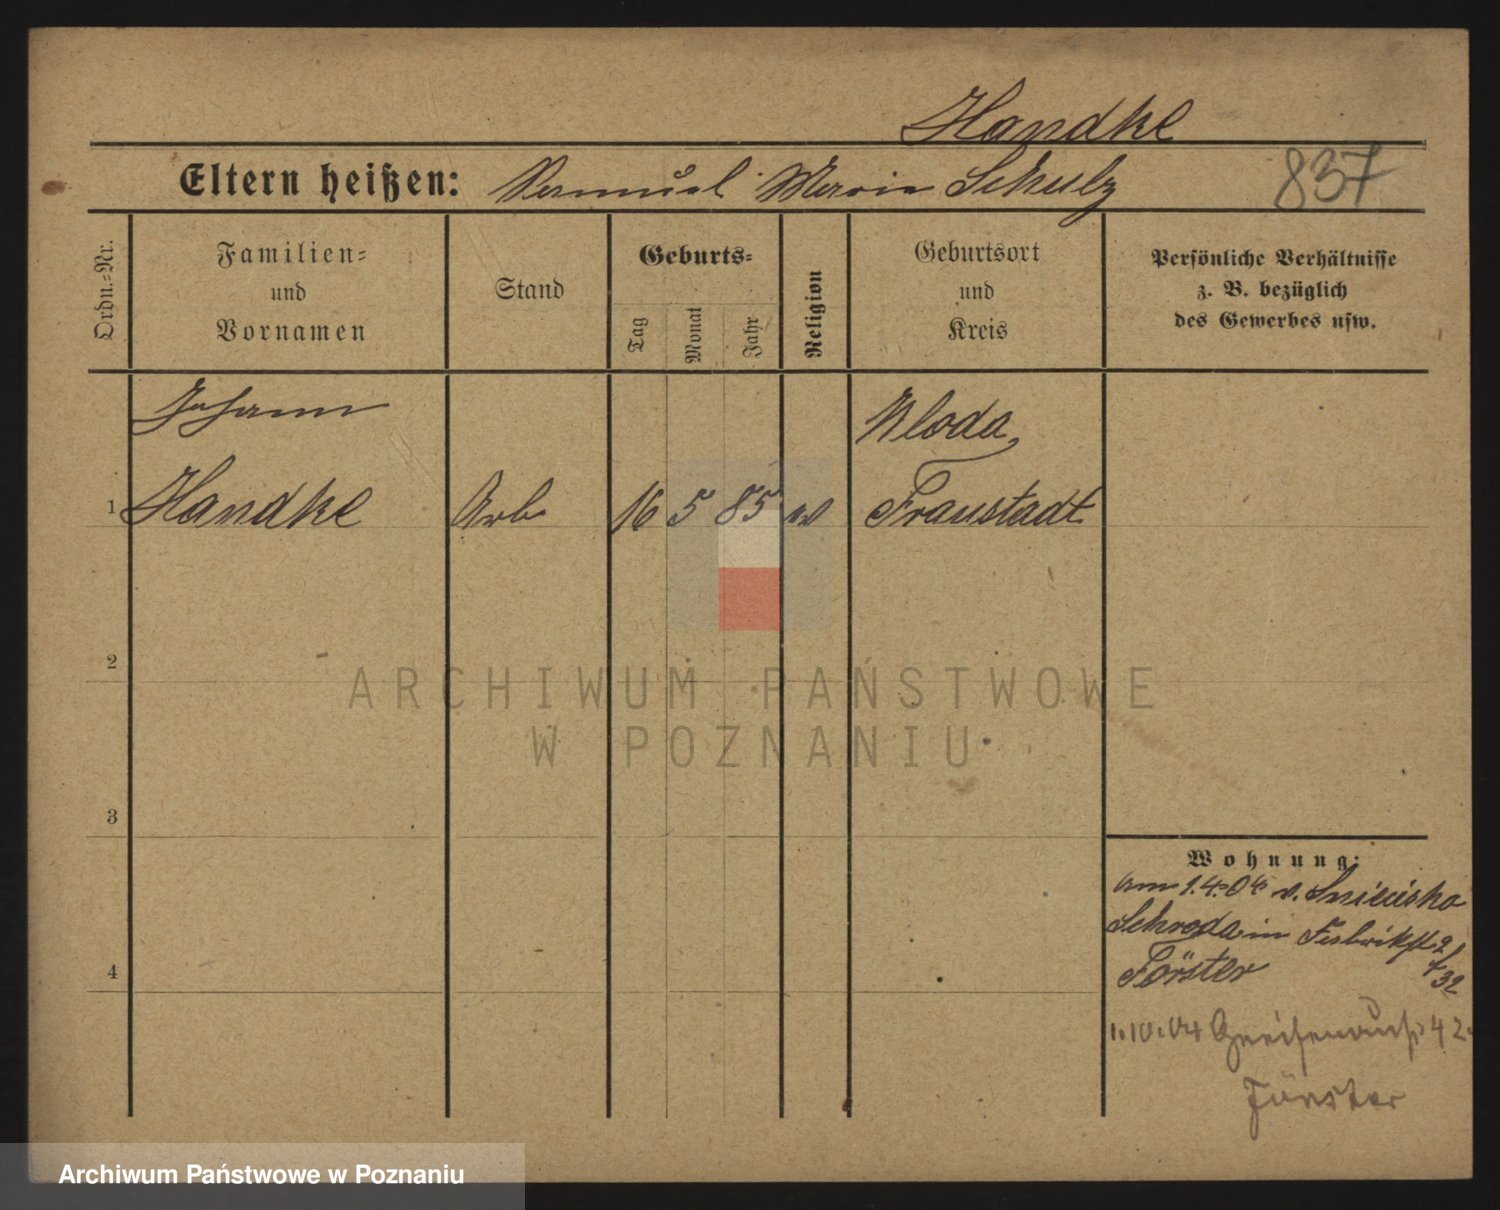 Handke
Eltern heißen: Samuel Marie Schulz 837
Ordn.-Nr.
Familien-
und
Vornamen
Stand
Geburts-
Tag
Monat
Jahr
Religion
Geburtsort
und
Kreis
Persönliche Verhältnisse
z. B. bezüglich
des Gewerbes usw.
Johann
Wloda,
1 Handke Arb 16 5 85 Fraustadt
2
ARCHIWUM PAŃSTWOWE
W POZNANIU
3
Wohnung:
am 1.4.04 v.
Schroda in
Förster
4
1.10.04 42
Förster
Archiwum Państwowe w Poznaniu